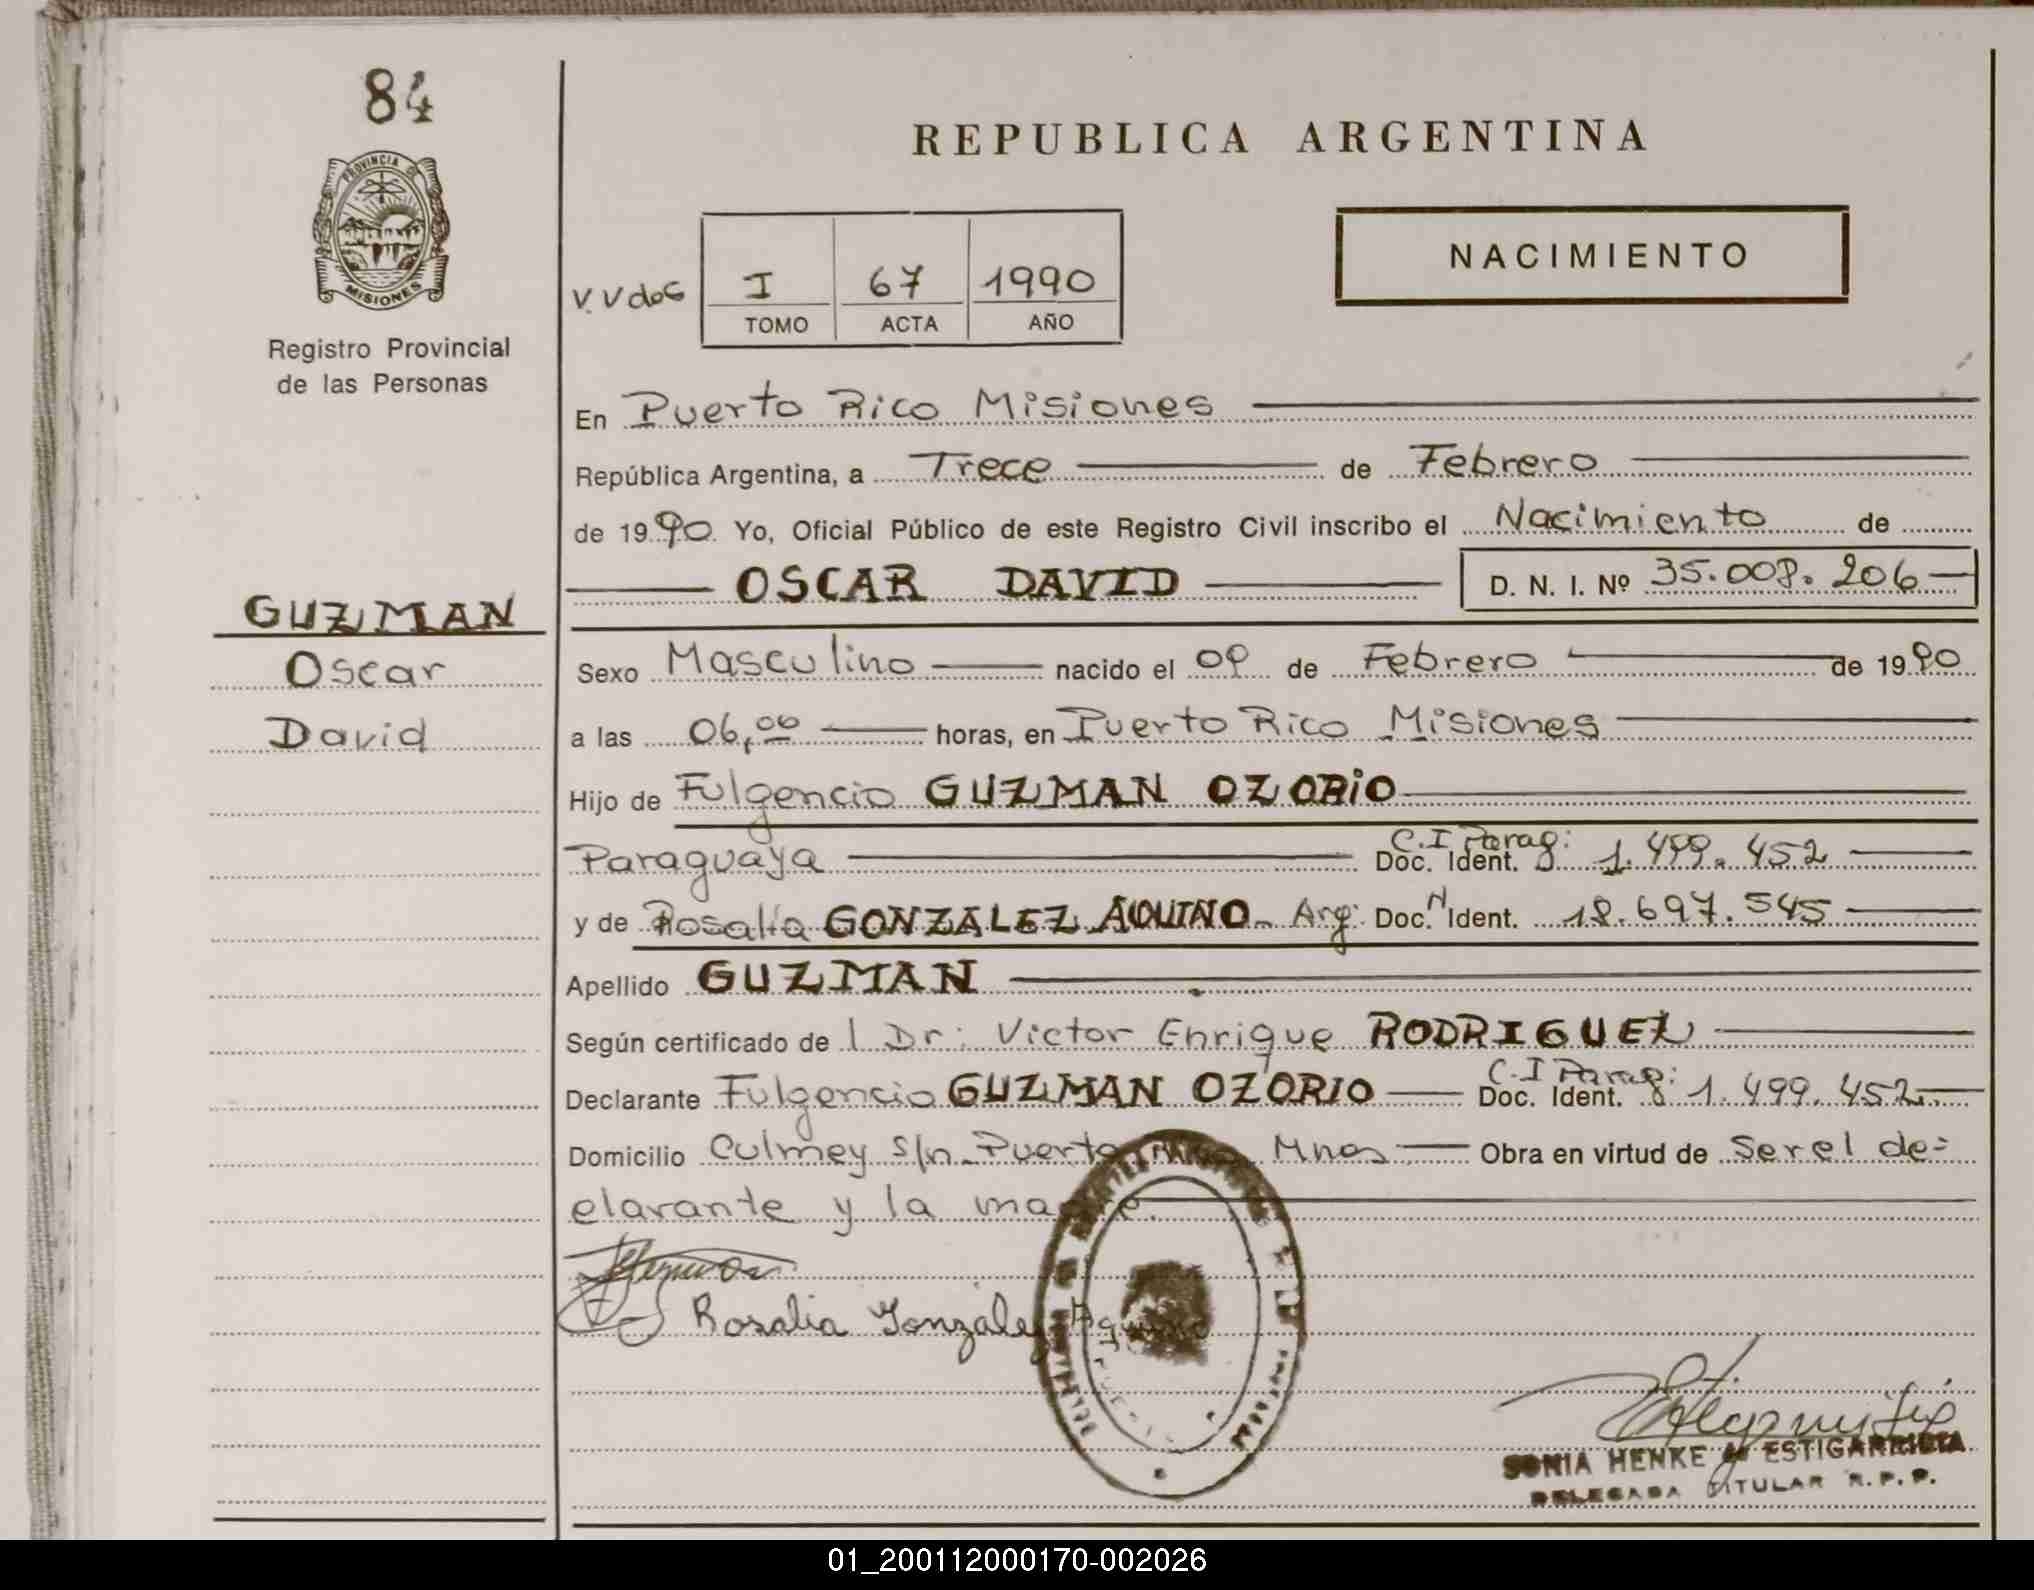 84
PROVINCIA DE
MISIONES
Registro Provincial
de las Personas
REPUBLICA ARGENTINA
NACIMIENTO
V.Vdos I 67 1990
TOMO ACTA AÑO
En Puerto Rico Misiones
República Argentina, a Trece de Febrero
de 1990 Yo, Oficial Público de este Registro Civil inscribo el Nacimiento de
OSCAR DAVID D. N. I. Nº 35.008.206
GUZMAN
Oscar
David
Sexo Masculino nacido el 09 de Febrero de 1990
a las 06,00 horas, en Puerto Rico Misiones
Hijo de Fulgencio GUZMAN OZORIO
Paraguaya C.I Parag: Doc. Ident. 1.499.452
y de Rosalía GONZALEZ AQUINO - Arg: Doc. N Ident. 18.697.545
Apellido GUZMAN
Según certificado de l Dr: Victor Enrique RODRIGUEZ
Declarante Fulgencio GUZMAN OZORIO C.I Parag: Doc. Ident. 1.499.452
Domicilio Culmey s/n Puerto Mnes Obra en virtud de Ser el de=
clarante y la madre.
Rosalia Gonzalez Aquino
SONIA HENKE de ESTIGARRIBIA
DELEGADA TITULAR R.P.P.
01_200112000170-002026